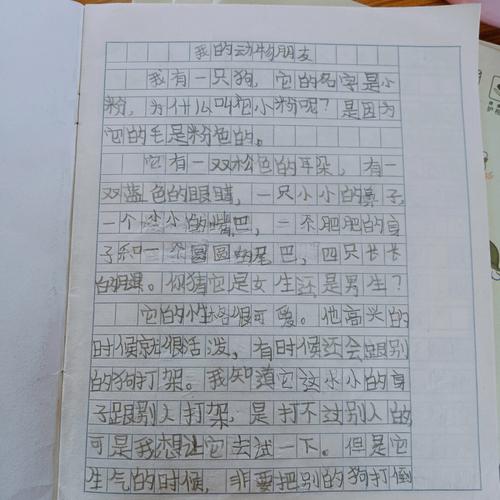 我的动物朋友
我有一只狗，它的名字是小
粉，为什么叫它小粉呢？是因为
它的毛是粉色的。
它有一双松色的耳朵，有一
双蓝色的眼睛，一只小小的鼻子，
一个小小的嘴巴，一个肥肥的身
子和一个圆圆的尾巴，四只长长
的腿。你猜它是女生还是男生？
它的小性格很可爱。他高兴的
时候就很活泼，有时候还会跟别
的狗打架。我知道它这小小的身
子跟别人打架，是打不过别人的，
可是我想让它去试一下。但是它
生气的时候，非要把别的狗打倒